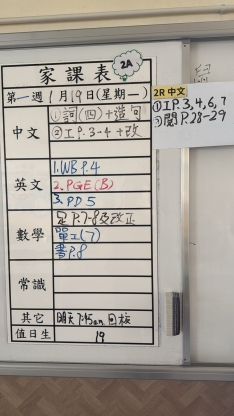 家課表
2A
第一週1月19日(星期一)
中文
①詞(四)+造句
②工P.3-4+改
英文
1.WB P.4
2.PGE(B)
3.PD5
數學
足P.7-8及改正
單工(7)
書P.8
常識
其它
明天7:45a.m.回校
值日生
19
2R 中文
①工P.3,4,6,7
②閱P.28-29